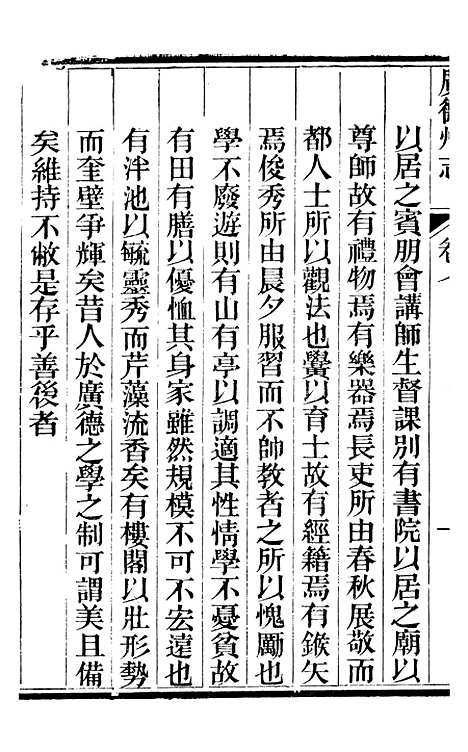 廣德州志
卷
以居之賓朋會講師生督課別有書院以居之廟以
尊師故有禮物焉有樂器焉長吏所由春秋展敬而
都人士所以觀法也黌以育士故有經籍焉有鍭矢
焉俊秀所由晨夕服習而不帥教者之所以愧勵也
學不廢遊則有山有亭以調適其性情學不憂貧故
有田有膳以優恤其身家雖然規模不可不宏遠也
有泮池以毓靈秀而芹藻流香矣有樓閣以壯形勢
而奎壁爭輝矣昔人於廣德之學之制可謂美且備
矣維持不敝是存乎善後者